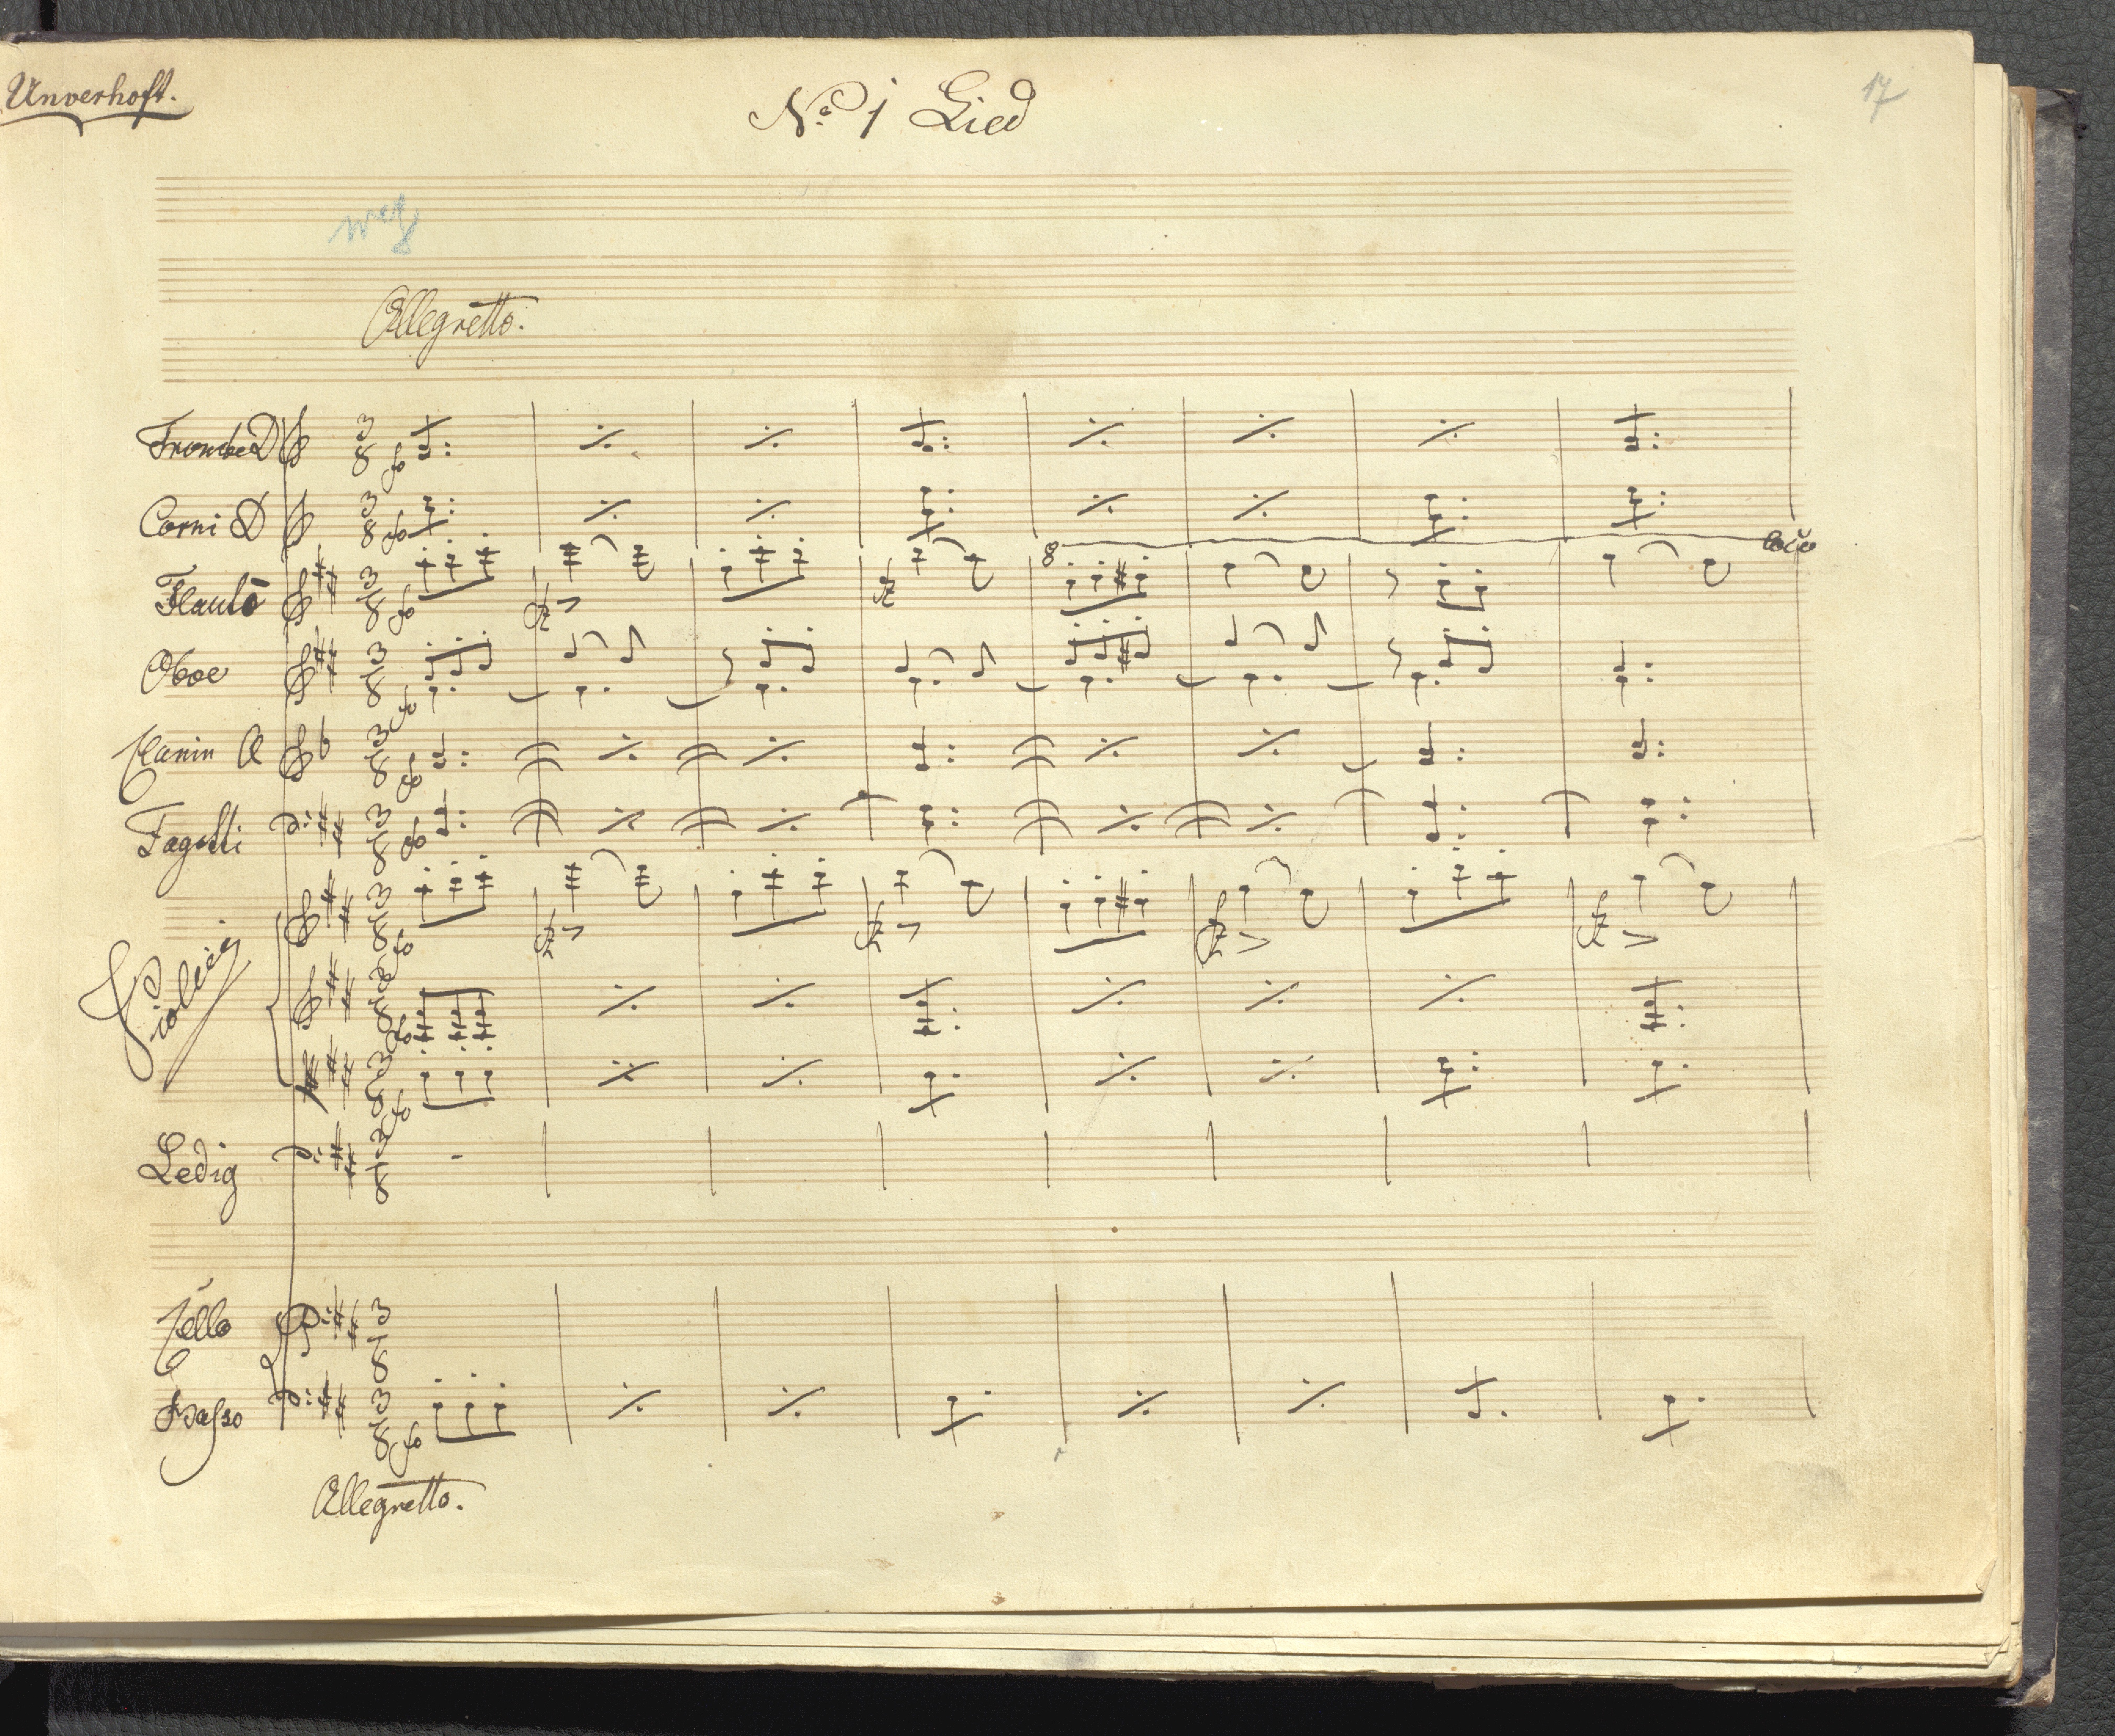 Unverhoft.
No 1 Lied
17
weg
Allegretto.
Trombe D
Corni D
8 loco
Flauto
Oboe
Clarin A
Fagotti
Violini
Ledig
Cello
Basso
Allegretto.